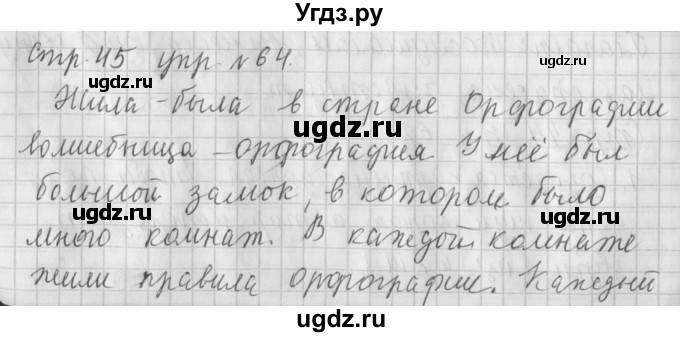 Угдз.ру
Стр. 45 упр. №64.
Жила-была в стране Орфографии
волшебница - орфография. У неё был
большой замок, в котором было
много комнат. В каждой комнате
жили правила орфографии. Каждый
ugdz.ru
ugdz.ru
ugdz.ru
ugdz.ru
ugdz.ru
ugdz.ru
ugdz.ru
ugdz.ru
ugdz.ru
ugdz.ru